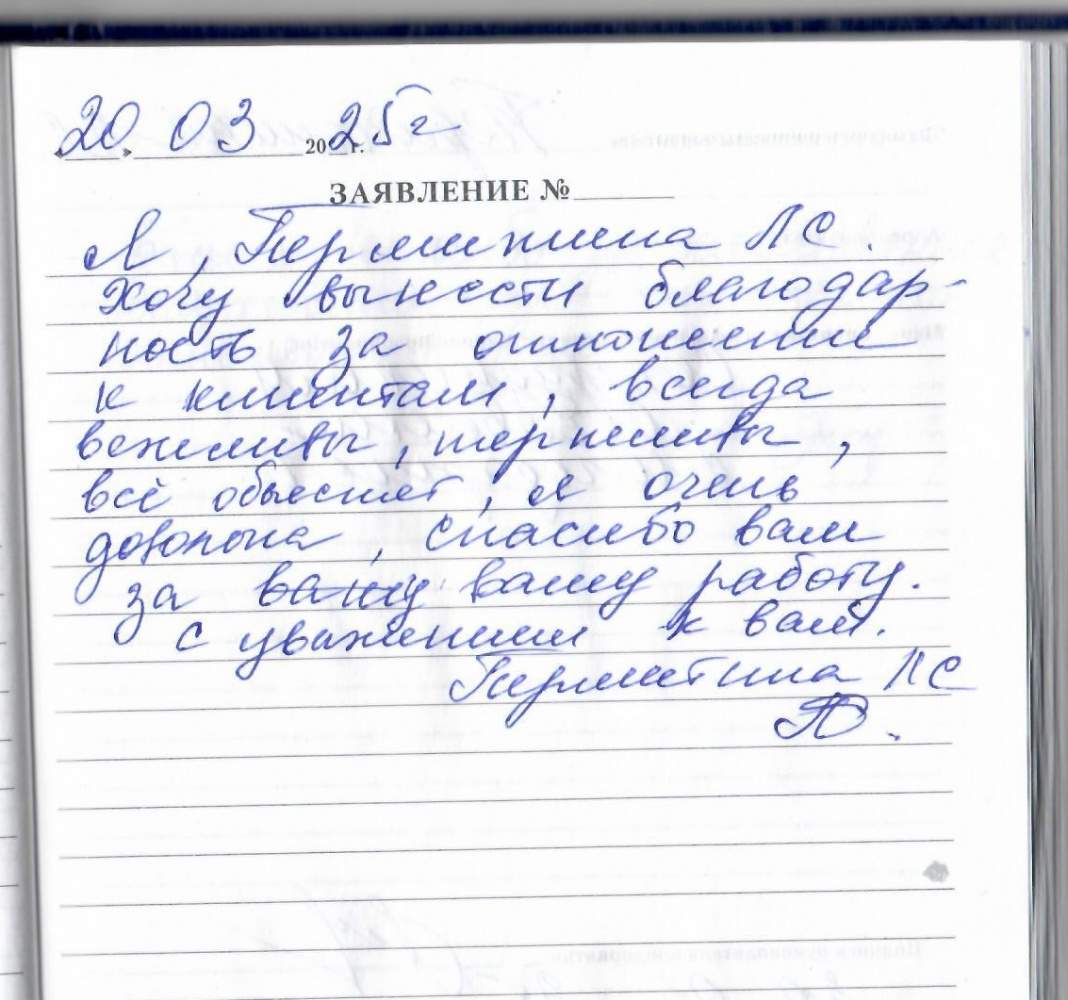 20. 03 2025г
ЗАЯВЛЕНИЕ №
Я, Перминина Л С.
хочу вынести благодар-
ность за отношение
к клиентам, всегда
вежливы, терпеливы,
всё объяснят, я очень
довольна, спасибо вам
за вашу вашу работу.
с уважением к вам.
Л С